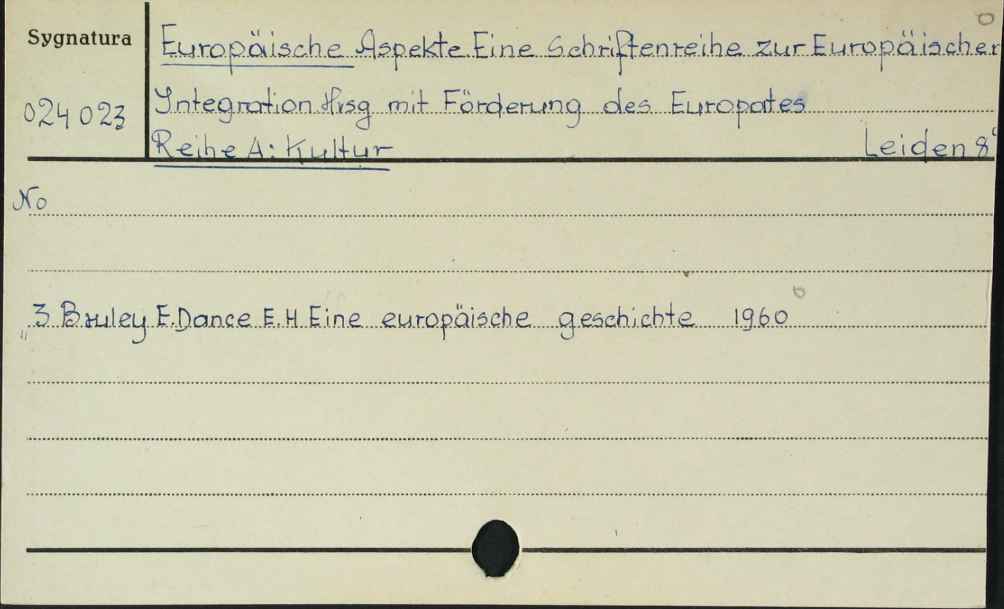 Sygnatura
024 023
Europäische Aspekte Eine Schriftenreihe zur Europäischen
Integration Hrsg mit Förderung des Europates
Reihe A: Kultur Leiden 8°
No
3 Bruley E. Dance E. H Eine europäische geschichte 1960